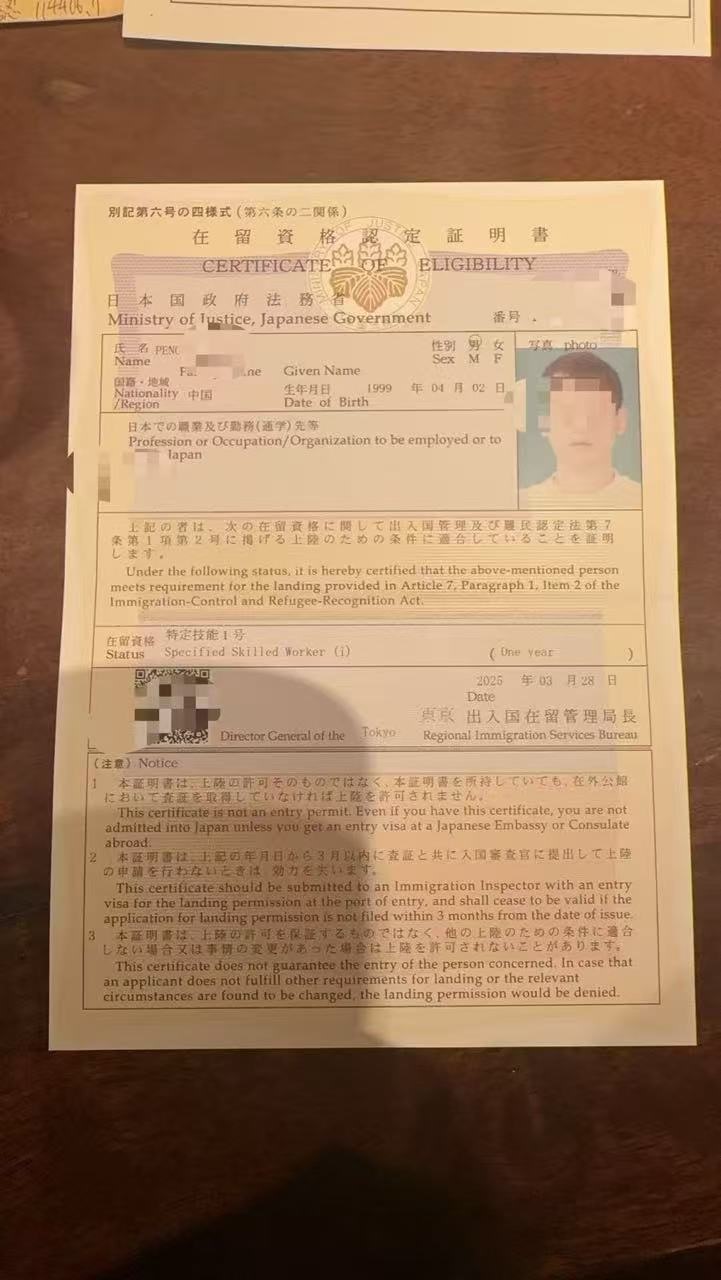 114406.7
別記第六号の四様式(第六条の二関係)
在留資格認定証明書
CERTIFICATE OF ELIGIBILITY
日本国政府法務省
Ministry of Justice, Japanese Government
番号
氏 名 PENG
Name
Given Name
性別 男 女
Sex M F
写真 photo
国籍・地域 中国
Nationality
/Region
生年月日 1999 年 04 月 02 日
Date of Birth
日本での職業及び勤務(通学)先等
Profession or Occupation/Organization to be employed or to
Japan
上記の者は、次の在留資格に関して出入国管理及び難民認定法第7
条第1項第2号に掲げる上陸のための条件に適合していることを証明
します。
Under the following status, it is hereby certified that the above-mentioned person
meets requirement for the landing provided in Article 7, Paragraph 1, Item 2 of the
Immigration-Control and Refugee-Recognition Act.
在留資格 特定技能1号
Status Specified Skilled Worker (i) ( One year )
2025 年 03 月 28 日
Date
東京 出入国在留管理局長
Director General of the Tokyo Regional Immigration Services Bureau
(注意) Notice
1 本証明書は、上陸の許可そのものではなく、本証明書を所持していても、在外公館
において査証を取得していなければ上陸を許可されません。
This certificate is not an entry permit. Even if you have this certificate, you are not
admitted into Japan unless you get an entry visa at a Japanese Embassy or Consulate
abroad.
2 本証明書は、上記の年月日から3月以内に査証と共に入国審査官に提出して上陸
の申請を行わないときは、効力を失います。
This certificate should be submitted to an Immigration Inspector with an entry
visa for the landing permission at the port of entry, and shall cease to be valid if the
application for landing permission is not filed within 3 months from the date of issue.
3 本証明書は、上陸の許可を保証するものではなく、他の上陸のための条件に適合
しない場合又は事情の変更があった場合は上陸を許可されないことがあります。
This certificate does not guarantee the entry of the person concerned. In case that
an applicant does not fulfill other requirements for landing or the relevant
circumstances are found to be changed, the landing permission would be denied.